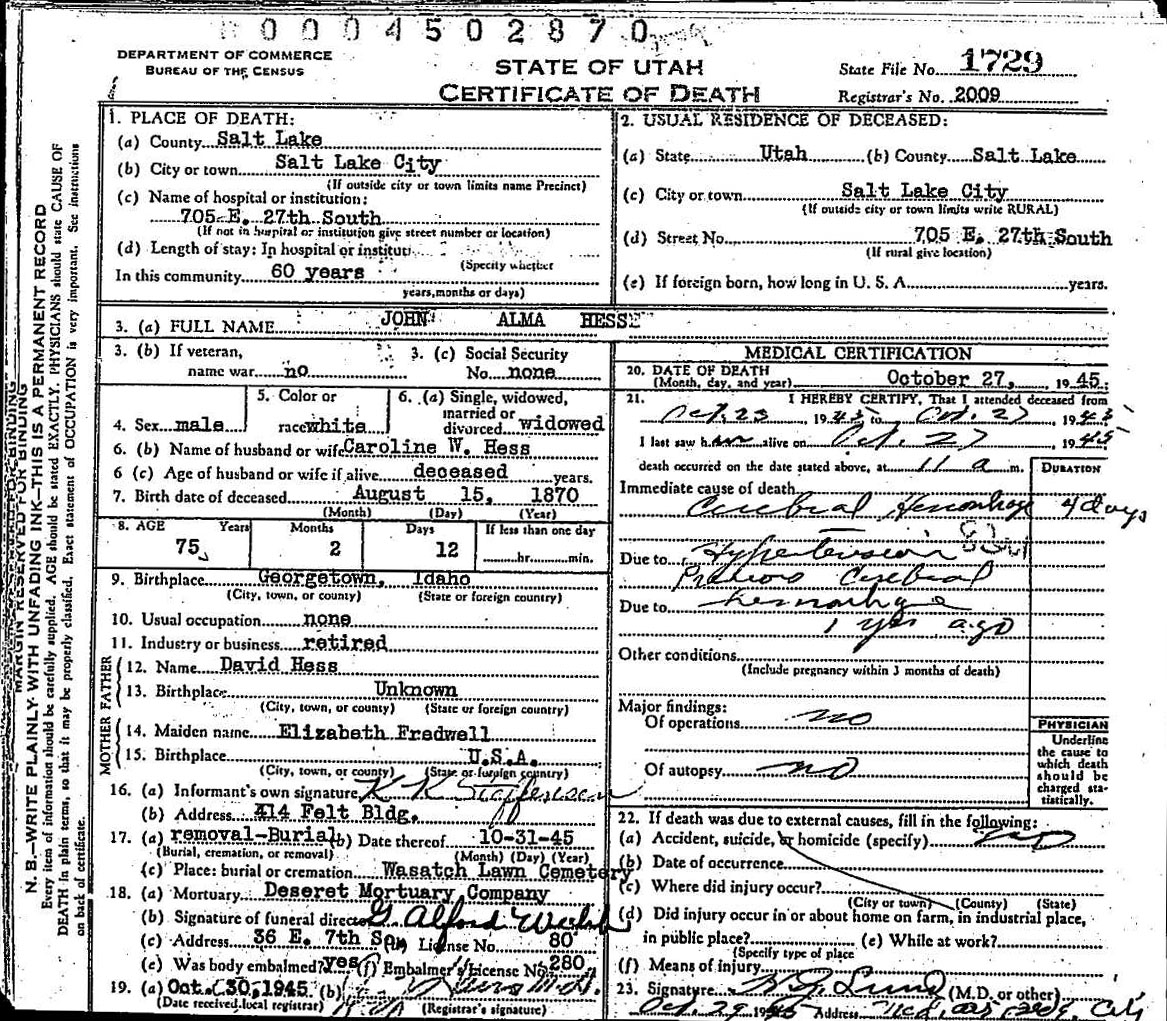 0004502870
DEPARTMENT OF COMMERCE
BUREAU OF THE CENSUS
STATE OF UTAH
CERTIFICATE OF DEATH
State File No. 1729
Registrar's No. 2009
MARGIN RESERVED FOR BINDING
N. B.—WRITE PLAINLY WITH UNFADING INK—THIS IS A PERMANENT RECORD
Every item of information should be carefully supplied. AGE should be stated EXACTLY. PHYSICIANS should state CAUSE OF
DEATH in plain terms, so that it may be properly classified. Exact statement of OCCUPATION is very important. See instructions
on back of certificate.
1. PLACE OF DEATH:
(a) County Salt Lake
(b) City or town Salt Lake City
(If outside city or town limits name Precinct)
(c) Name of hospital or institution:
705 E. 27th South
(If not in hospital or institution give street number or location)
(d) Length of stay: In hospital or institu
(Specify whether
In this community 60 years
years, months or days)
2. USUAL RESIDENCE OF DECEASED:
(a) State Utah (b) County Salt Lake
(c) City or town Salt Lake City
(If outside city or town limits write RURAL)
(d) Street No. 705 E. 27th South
(If rural give location)
(e) If foreign born, how long in U. S. A. years.
3. (a) FULL NAME JOHN ALMA HESS
3. (b) If veteran,
name war no
3. (c) Social Security
No. none
4. Sex male
5. Color or
race white
6. (a) Single, widowed,
married or
divorced widowed
6. (b) Name of husband or wife Caroline W. Hess
6 (c) Age of husband or wife if alive deceased years.
7. Birth date of deceased August 15, 1870
(Month) (Day) (Year)
8. AGE Years Months Days If less than one day
75 2 12 hr. min.
9. Birthplace Georgetown, Idaho
(City, town, or county) (State or foreign country)
10. Usual occupation none
11. Industry or business retired
FATHER
12. Name David Hess
13. Birthplace Unknown
(City, town, or county) (State or foreign country)
MOTHER
14. Maiden name Elizabeth Fredwell
15. Birthplace U.S.A.
(City, town, or county) (State or foreign country)
16. (a) Informant's own signature K K Steffensen
(b) Address 414 Felt Bldg.
17. (a) removal-Burial (b) Date thereof 10-31-45
(Burial, cremation, or removal) (Month) (Day) (Year)
(c) Place: burial or cremation Wasatch Lawn Cemetery
18. (a) Mortuary Deseret Mortuary Company
(b) Signature of funeral direc G. Alford
(c) Address 36 E. 7th So. License No. 80
(e) Was body embalmed? yes (f) Embalmer's License No. 280
19. (a) Oct. 30, 1945 (b)
(Date received local registrar) (Registrar's signature)
MEDICAL CERTIFICATION
20. DATE OF DEATH
(Month, day, and year) October 27, 1945.
21. I HEREBY CERTIFY, That I attended deceased from
Oct. 23 1945 to Oct. 27, 1945
I last saw him alive on Oct. 27 1945
death occurred on the date stated above, at 11 a m.
DURATION
Immediate cause of death
Cerebral Hemorrhage 4 days
Due to Hypertension
Previous Cerebral
Due to hemorrhage
1 yr ago
Other conditions
(Include pregnancy within 3 months of death)
Major findings:
Of operations no
Of autopsy no
PHYSICIAN
Underline
the cause to
which death
should be
charged sta-
tistically.
22. If death was due to external causes, fill in the following:
(a) Accident, suicide, or homicide (specify) no
(b) Date of occurrence
(c) Where did injury occur?
(City or town) (County) (State)
(d) Did injury occur in or about home on farm, in industrial place,
in public place? (e) While at work?
(Specify type of place
(f) Means of injury
23. Signature Lund (M.D. or other)
Oct. 29 1945 Address City